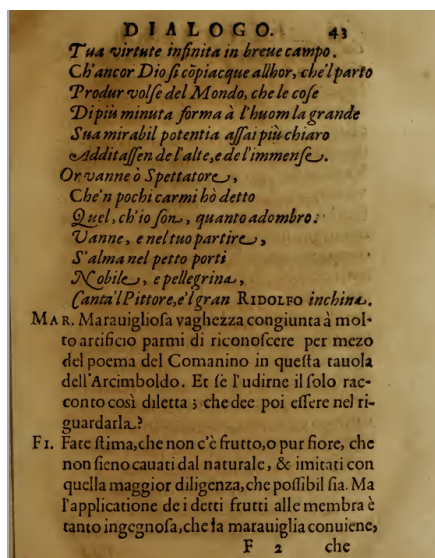 DIALOGO. 43
Tua virtute infinita in breue campo.
Ch'ancor Dio si cōpiacque allhor, che'l parto
Produr volse del Mondo, che le cose
Di più minuta forma à l'huom la grande
Sua mirabil potentia assai più chiaro
Additassen de l'alte, e de l'immense.
Or vanne ò Spettatore,
Che'n pochi carmi hò detto
Quel, ch'io son, quanto adombro:
Vanne, e nel tuo partire,
S'alma nel petto porti
Nobile, e pellegrina,
Canta'l Pittore, e'l gran RIDOLFO inchina.
MAR. Marauigliosa vaghezza congiunta à mol-
to artificio parmi di riconoscere per mezo
del poema del Comanino in questa tauola
dell'Arcimboldo. Et se l'udirne il solo rac-
conto così diletta; che dee poi essere nel ri-
guardarla?
FI. Fate stima, che non c'è frutto, o pur fiore, che
non sieno cauati dal naturale, & imitati con
quella maggior diligenza, che possibil sia. Ma
l'applicatione de i detti frutti alle membra è
tanto ingegnosa, che la marauiglia conuiene,
F 2 che